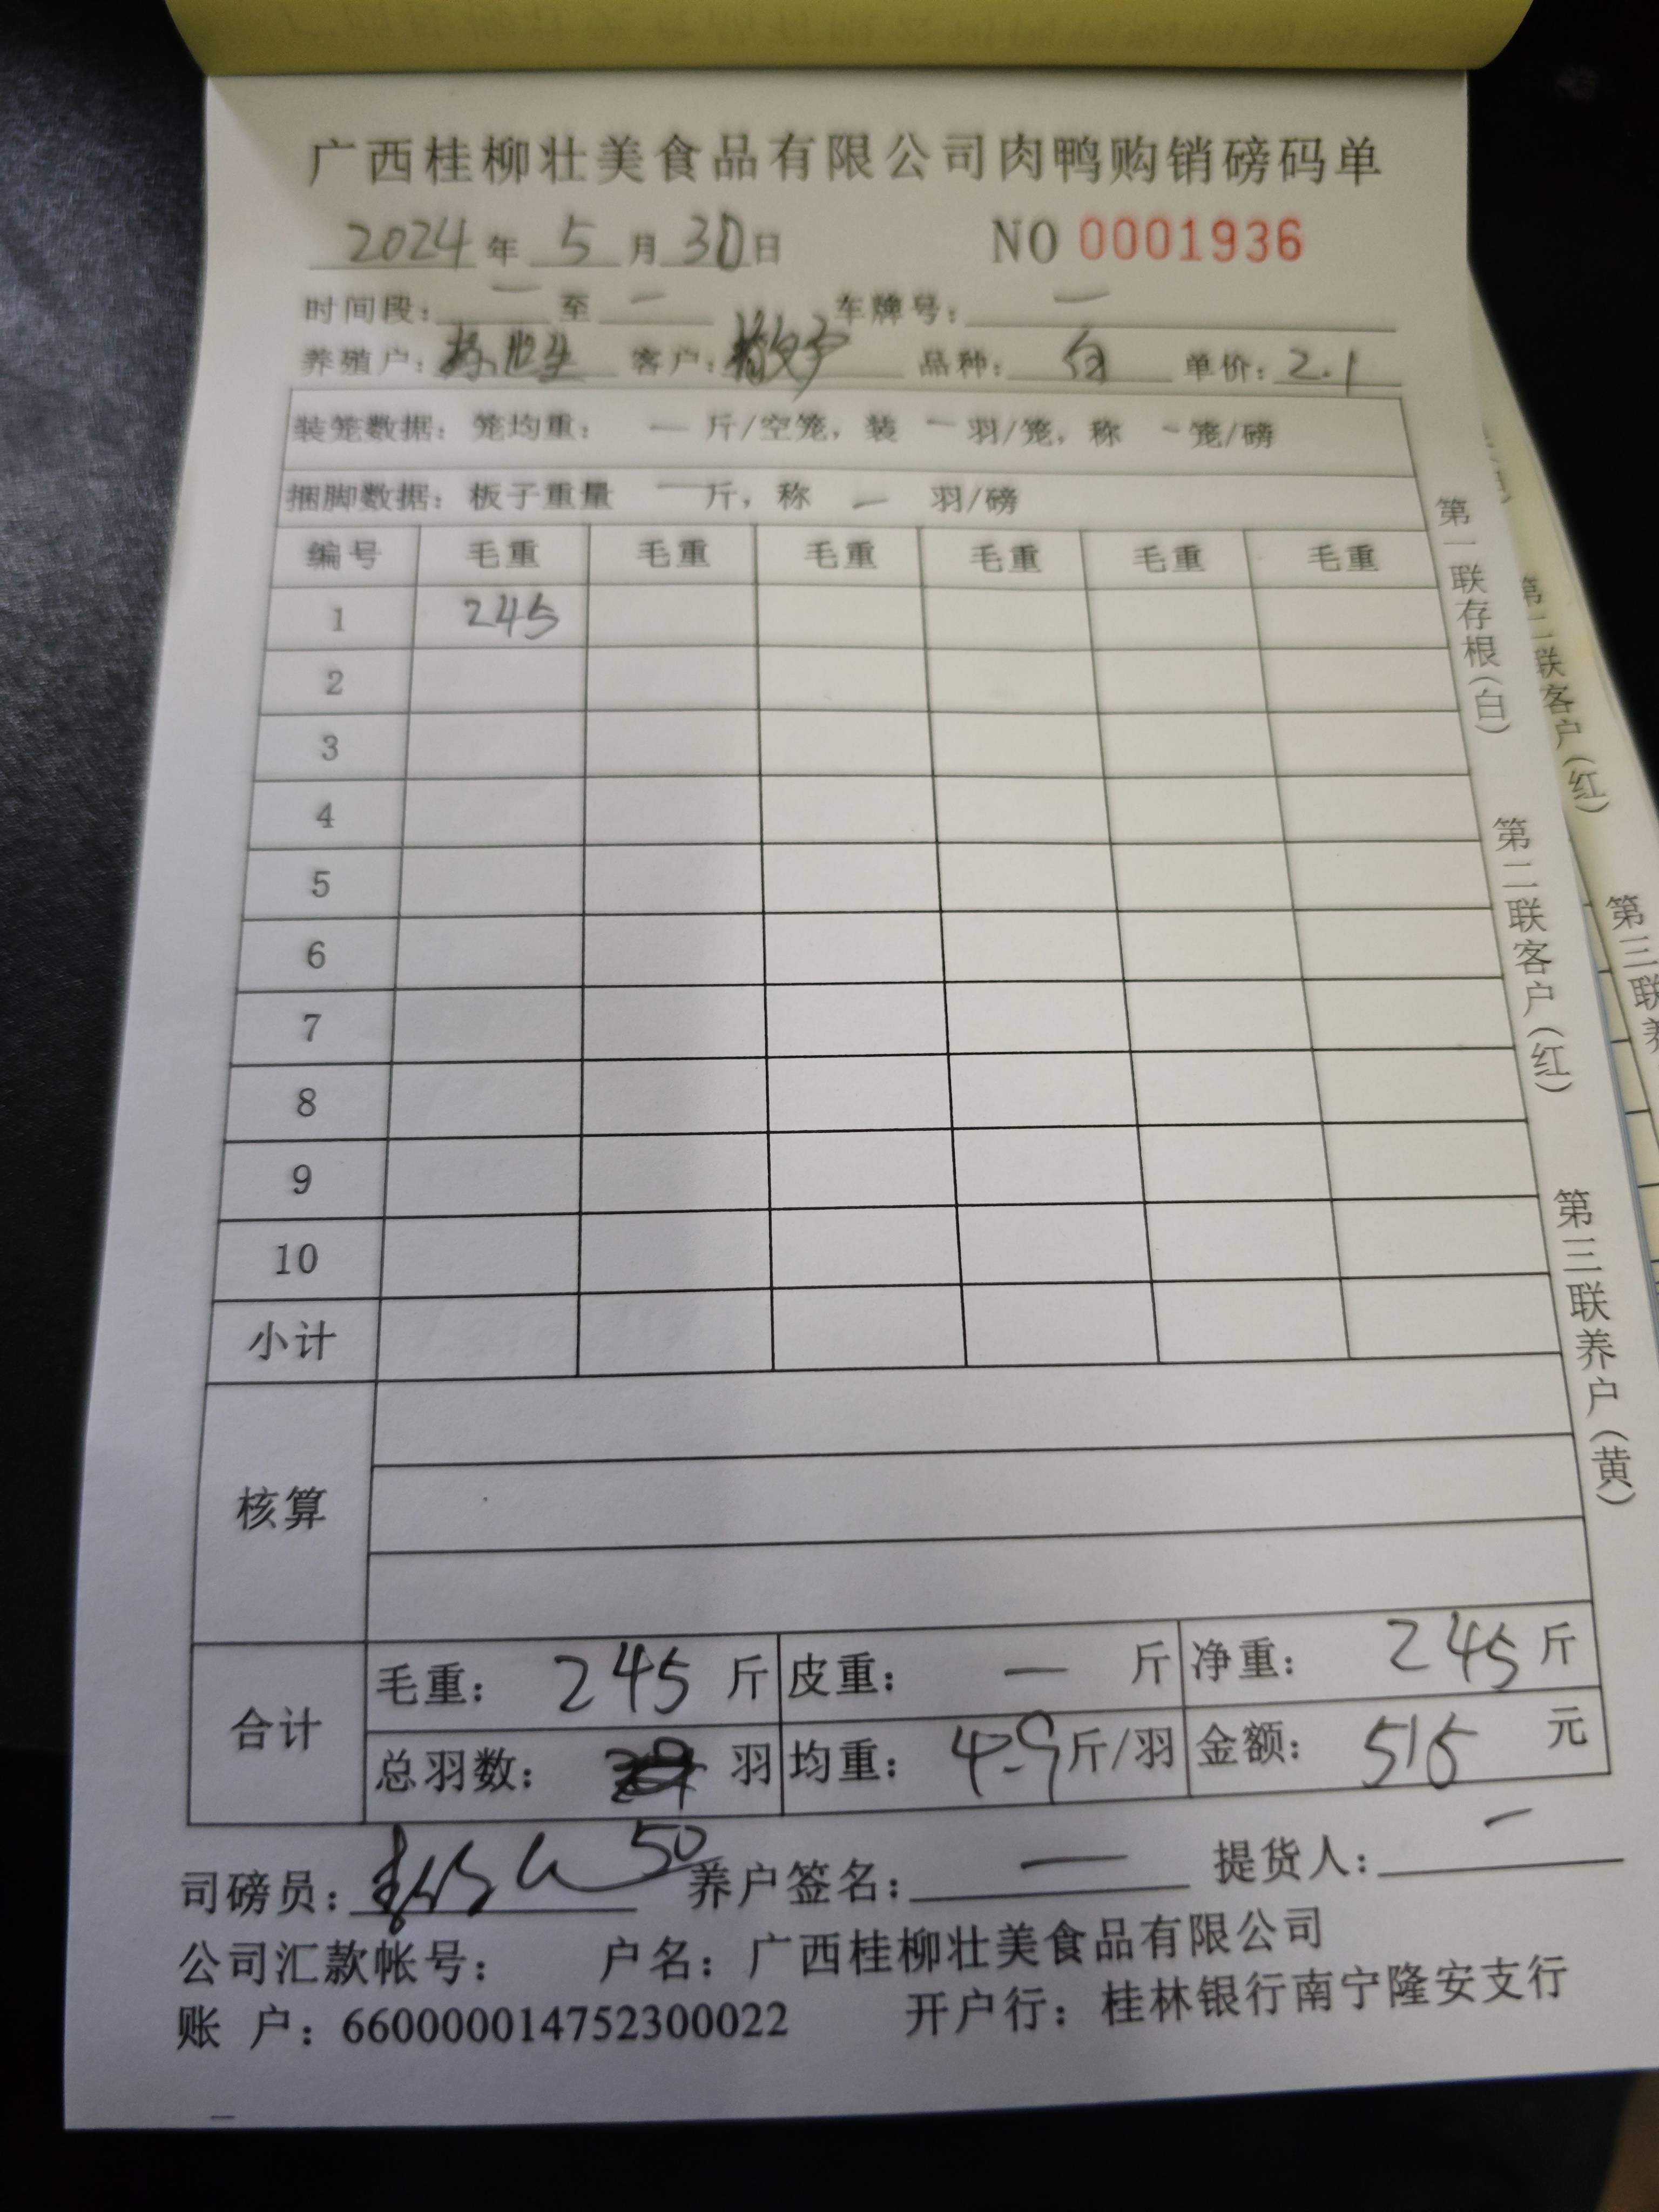 广西桂柳壮美食品有限公司肉鸭购销磅码单
2024年 5月30日 NO 0001936
时间段：一至一 车牌号：一
养殖户： 客户：散户 品种：白 单价：2.1
装笼数据：笼均重：一斤/空笼，装一羽/笼，称-笼/磅
捆脚数据：板子重量一斤，称一羽/磅
编号 毛重 毛重 毛重 毛重 毛重 毛重
1 245
2
3
4
5
6
7
8
9
10
小计
核算
合计
毛重：245斤 皮重：一斤 净重：245斤
总羽数：羽 均重：4.9斤/羽 金额：515元
50
司磅员： 养户签名：一 提货人：一
公司汇款帐号： 户名：广西桂柳壮美食品有限公司
账 户：660000014752300022 开户行：桂林银行南宁隆安支行
第一联存根（白）
第二联客户（红）
第三联养户（黄）
第二联客户（红）
第三联养